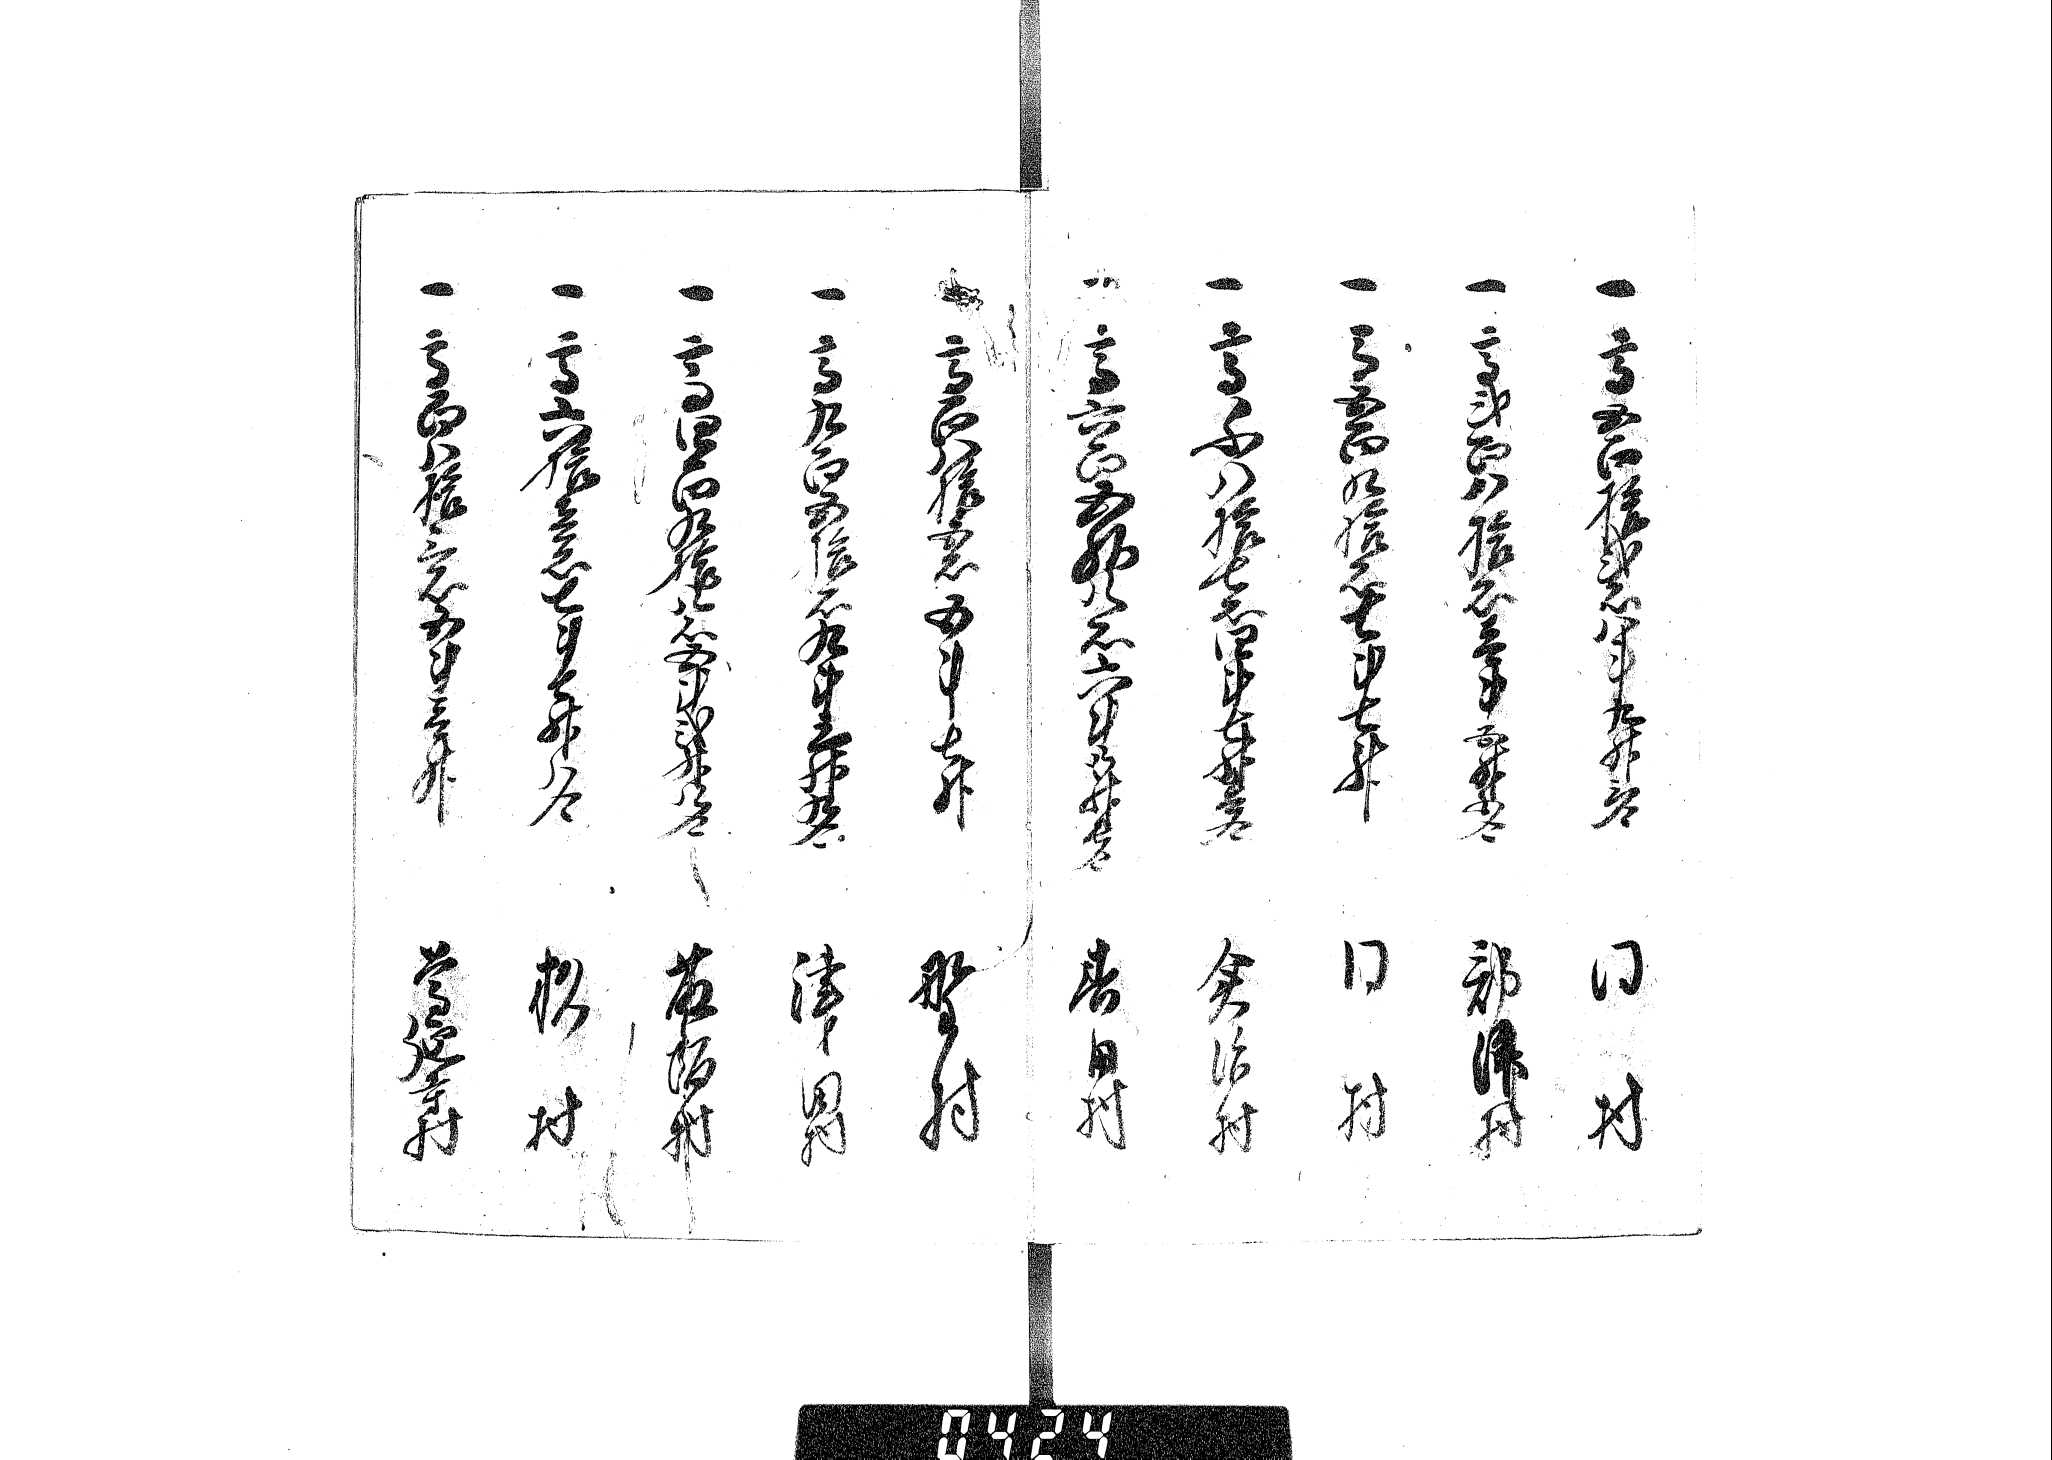 一 高五百拾弐石八斗九升六合 同村
一 高弐百八拾石三斗五升九合 郡津村
一 高五百九拾石七斗七升 同村
一 高千八拾七石四斗七升三合 倉治村
一 高六百五拾八石六斗八升七合 春日村
一 高百八拾五石五斗七升 野村
一 高九百五拾石九斗三升九合 津田村
一 高四百九拾八石五斗弐升八合 藤阪村
一 高六拾三石七斗一升八合 杉村
一 高百八拾六石五斗三升 尊延寺村
0424